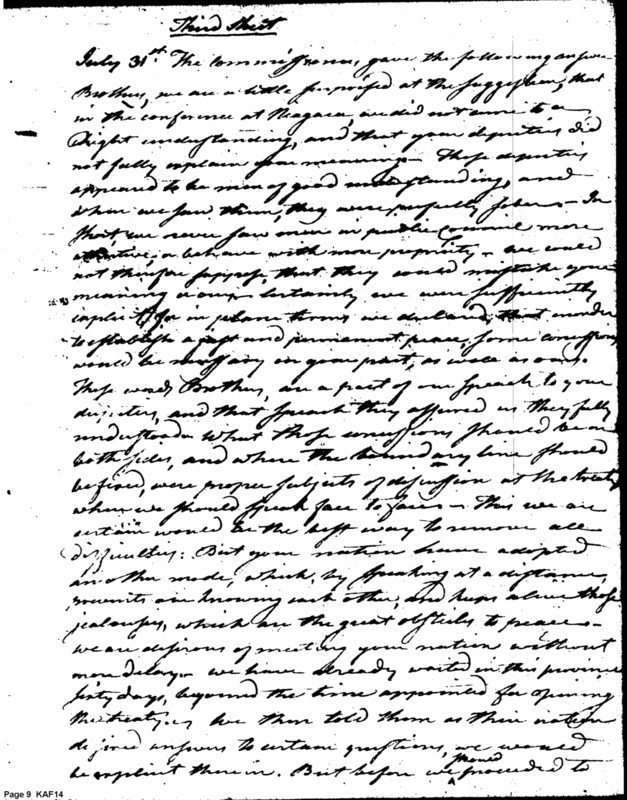 Third Sheet
July 31st. The Commissioners, gave the following answer
Brothers, we are a little surprised at the suggestion, that
in the conference at Niagara, we did not come to a
right understanding, and that your deputies did
not fully explain your meaning. These deputies
appeared to be men of good understanding, and
when we saw them, they were perfectly sober – In
short, we never saw men in public Council more
attentive, or behave with more propriety – we could
not therefore suppose, that they would mistake your
meaning or ours – Certainly we were sufficiently
explicit, for in plain terms we declared, that in order
to establish a just and permanent peace, some concessions
would be necessary on your part, as well as ours.
These words Brothers, are a part of our speech to your
deputies, and that speech they assured us they fully
understood. What those concessions should be on
both sides, and where the boundary line should
be fixed, were proper subjects of discussion at the treaty
when we should speak face to face – This we are
certain would be the best way to remove all
difficulties: But your nation have adopted
another mode, which, by speaking at a distance,
prevents our knowing each other, and keeps alive those
jealousies, which are the great obstacles to peace –
we are desirous of meeting your nation without
more delay – we have already waited in this province
sixty days, beyond the time appointed for opening
the treaty. We then told them as their nation
desired answers to certain questions, we would
be explicit there in. But before we should proceeded to
Page 9 KAF14